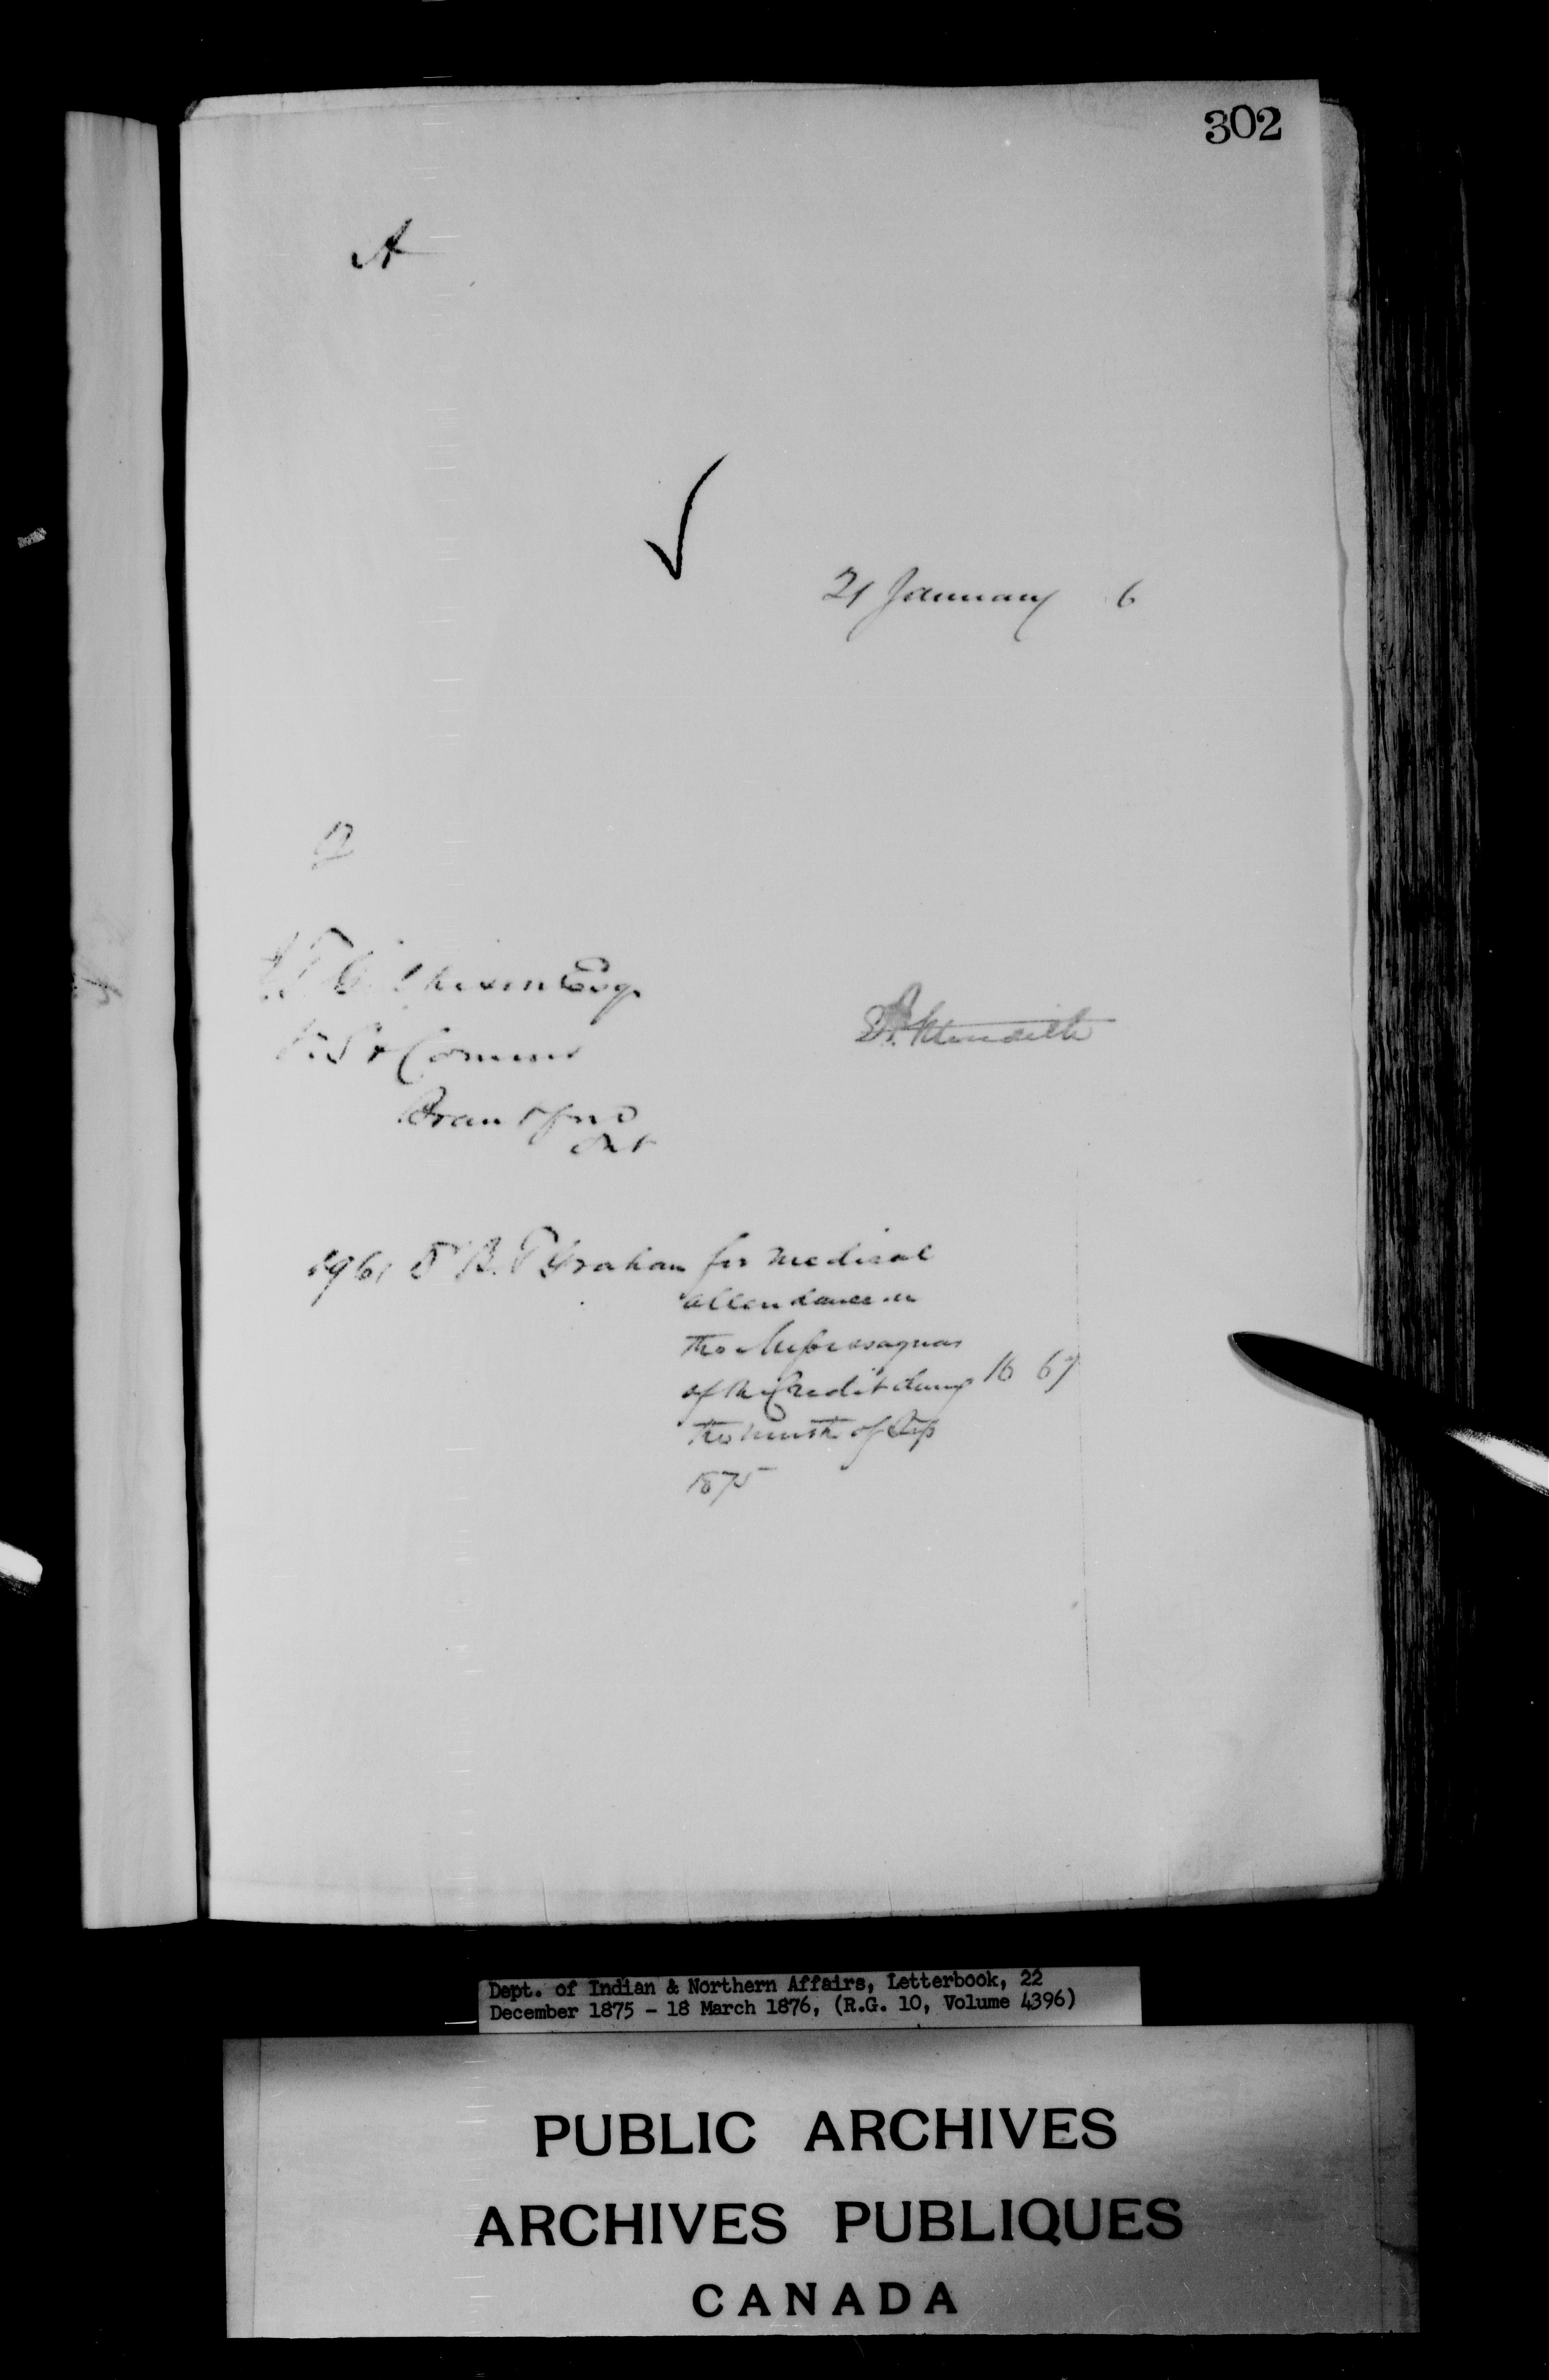 302
A
21 January 6
Esq.
V. S & Commr
Brantford
Ont
1961 Dr B. P Graham for medical
attendance on
the Mississaguas
of the Credit during 16 67
the month of Sep
1875
Dept. of Indian & Northern Affairs, Letterbook, 22
December 1875 - 18 March 1876, (R.G. 10, Volume 4396)
PUBLIC ARCHIVES
ARCHIVES PUBLIQUES
CANADA